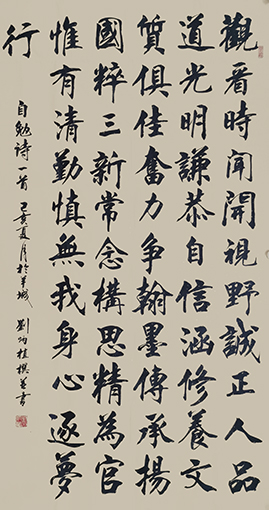 觀看時聞開視野誠正人品
道光明謙恭自信涵修養文
質俱佳奮力爭翰墨傳承揚
國粹三新常念構思精為官
惟有清勤慎無我身心逐夢
行
自勉詩一首己亥夏月於羊城劉桂撰並書